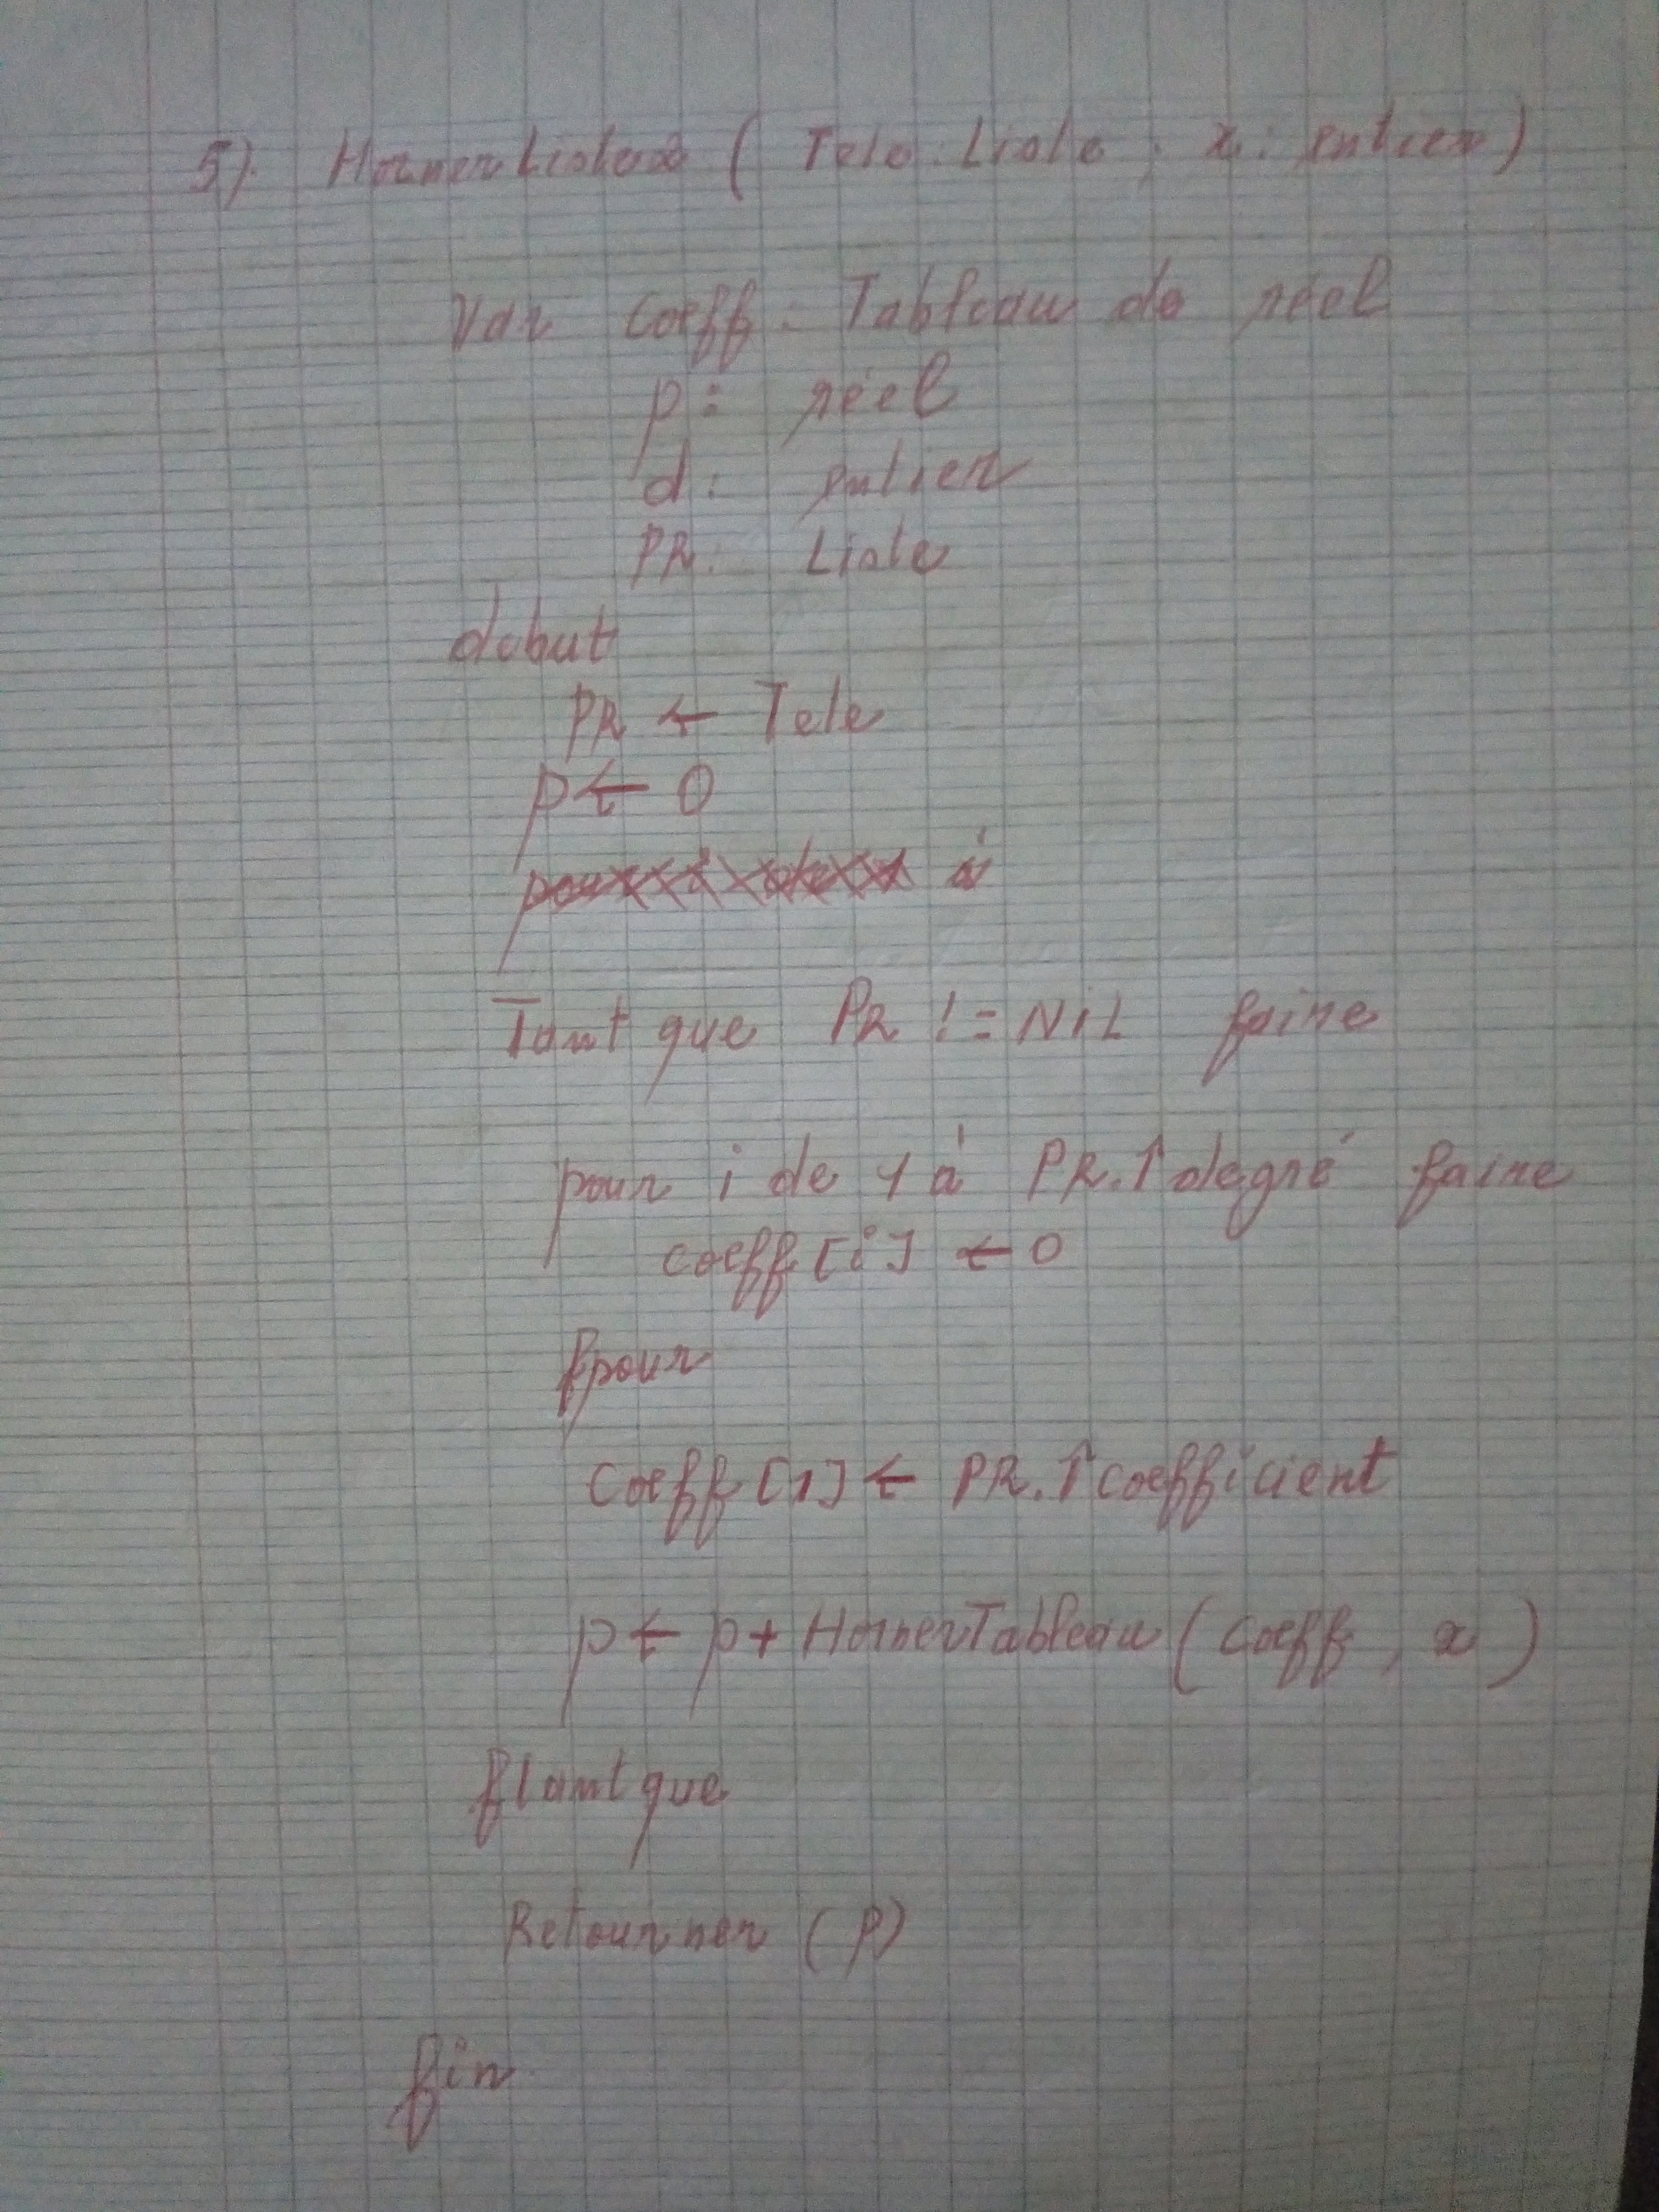 5). HornerListe (Tete : Liste, x : entier)
Var coeff : Tableau de réel
p : réel
d : entier
PR : Liste
debut
PR ← Tete
p ← 0
à
Tant que PR != NiL faire
pour i de 1 à PR.↑degré faire
coeff[i] ← 0
fpour
coeff[1] ← PR.↑coefficient
p ← p + HornerTableau (coeff, x)
ftantque
Retourner (p)
fin